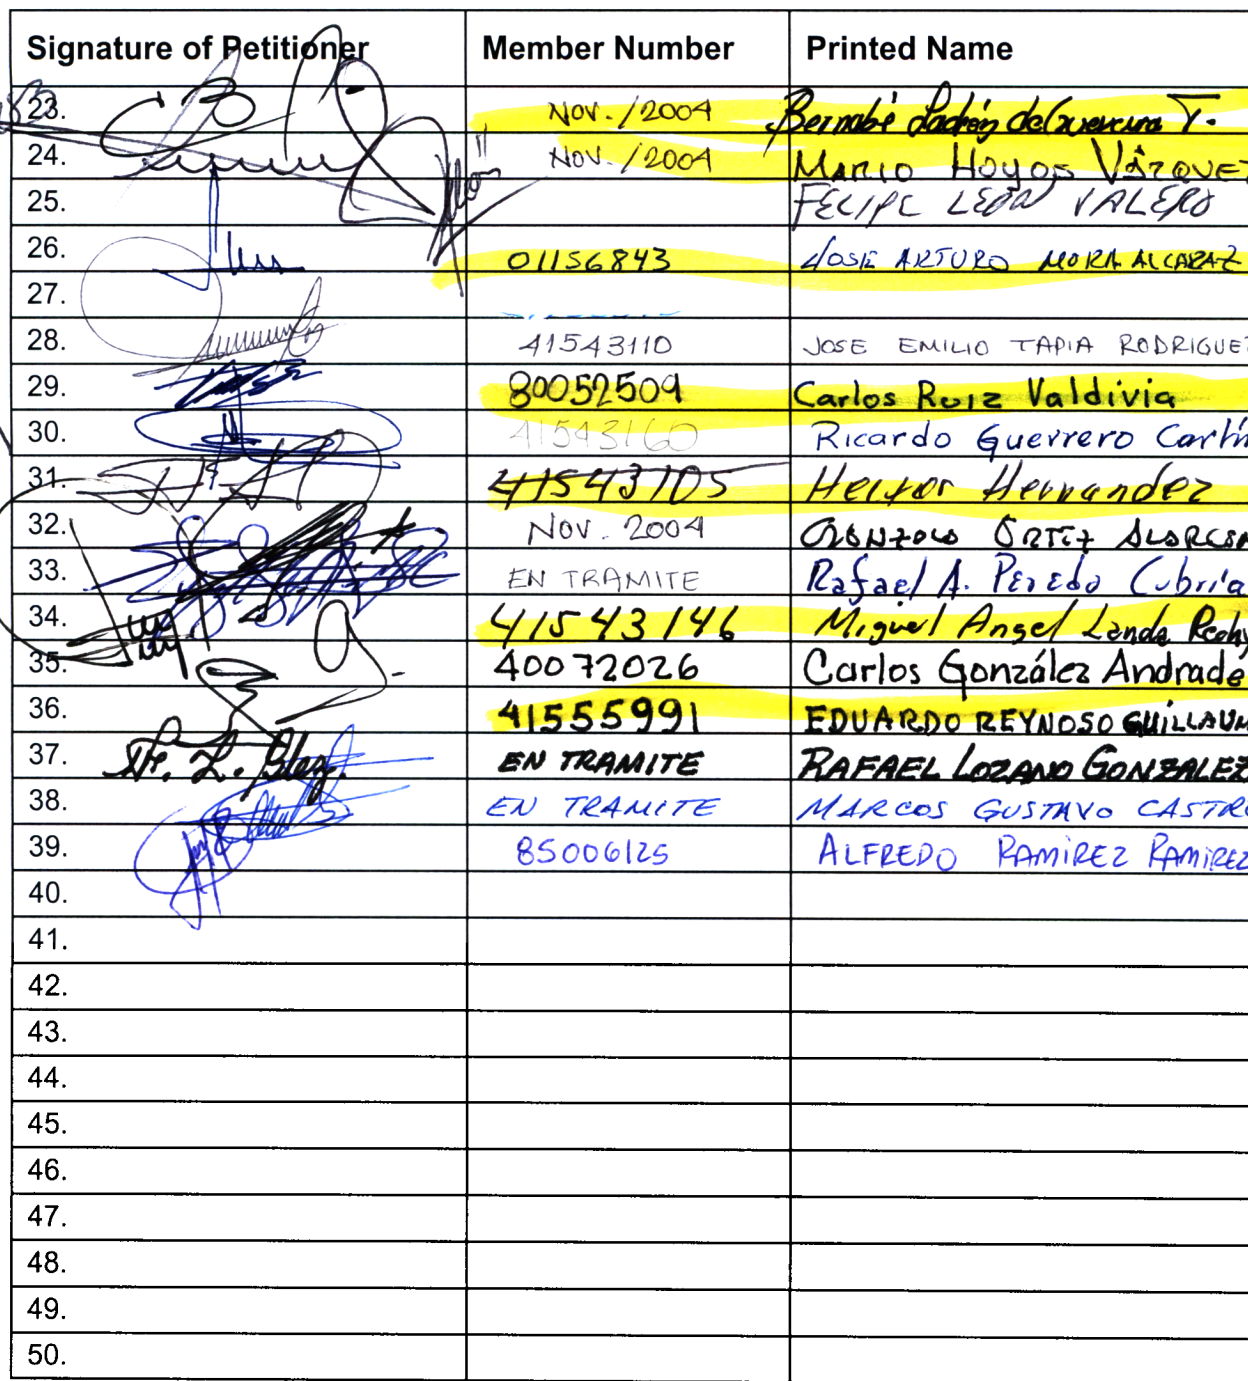 Signature of Petitioner Member Number Printed Name
23. Nov. / 2004 Bernabé Ladrón de Guevara T.
24. Nov. / 2004 Mario Hoyos Vázquez
25. FELIPE LEÓN VALERO
26. 01156843 JOSE ARTURO MORA ALCARAZ
27.
28. 41543110 JOSE EMILIO TAPIA RODRIGUEZ
29. 80052509 Carlos Ruiz Valdivia
30. 41543160 Ricardo Guerrero
31. 41543105 Hector Hernandez
32. Nov. 2004 ORTIZ
33. EN TRAMITE Rafael A. Peredo Cubria
34. 41543146 Miguel Angel Landa
35. 40072026 Carlos González Andrade
36. 41555991 EDUARDO REYNOSO GUILLAUM
37. EN TRAMITE RAFAEL LOZANO GONZALEZ
38. EN TRAMITE MARCOS GUSTAVO CASTRO
39. 85006125 ALFREDO RAMIREZ RAMIREZ
40.
41.
42.
43.
44.
45.
46.
47.
48.
49.
50.